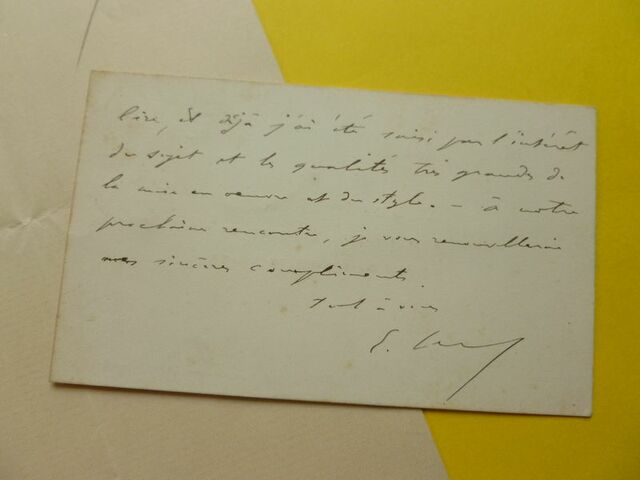 lire, et déjà j'ai été saisi par l'intérêt
du sujet et les qualités très grandes de
la mise en oeuvre et du style. — à notre
prochaine rencontre, je vous renouvellerai
mes sincères compliments.
tout à vous
E.